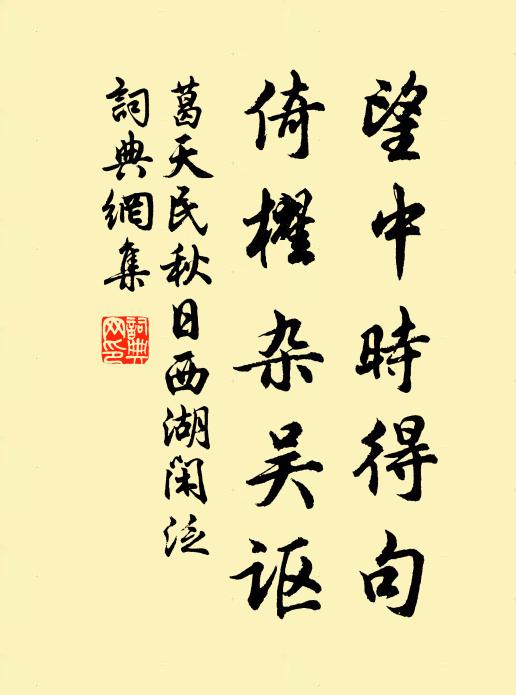 望中時得句
倚櫂杂吴讴
葛天民秋日西湖闲泛
詞典網集
詞典网印